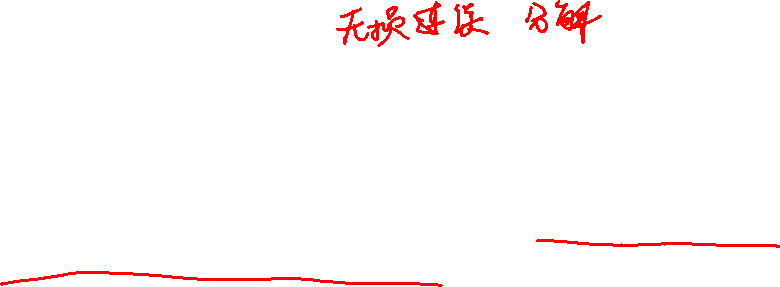 无损连接 分解